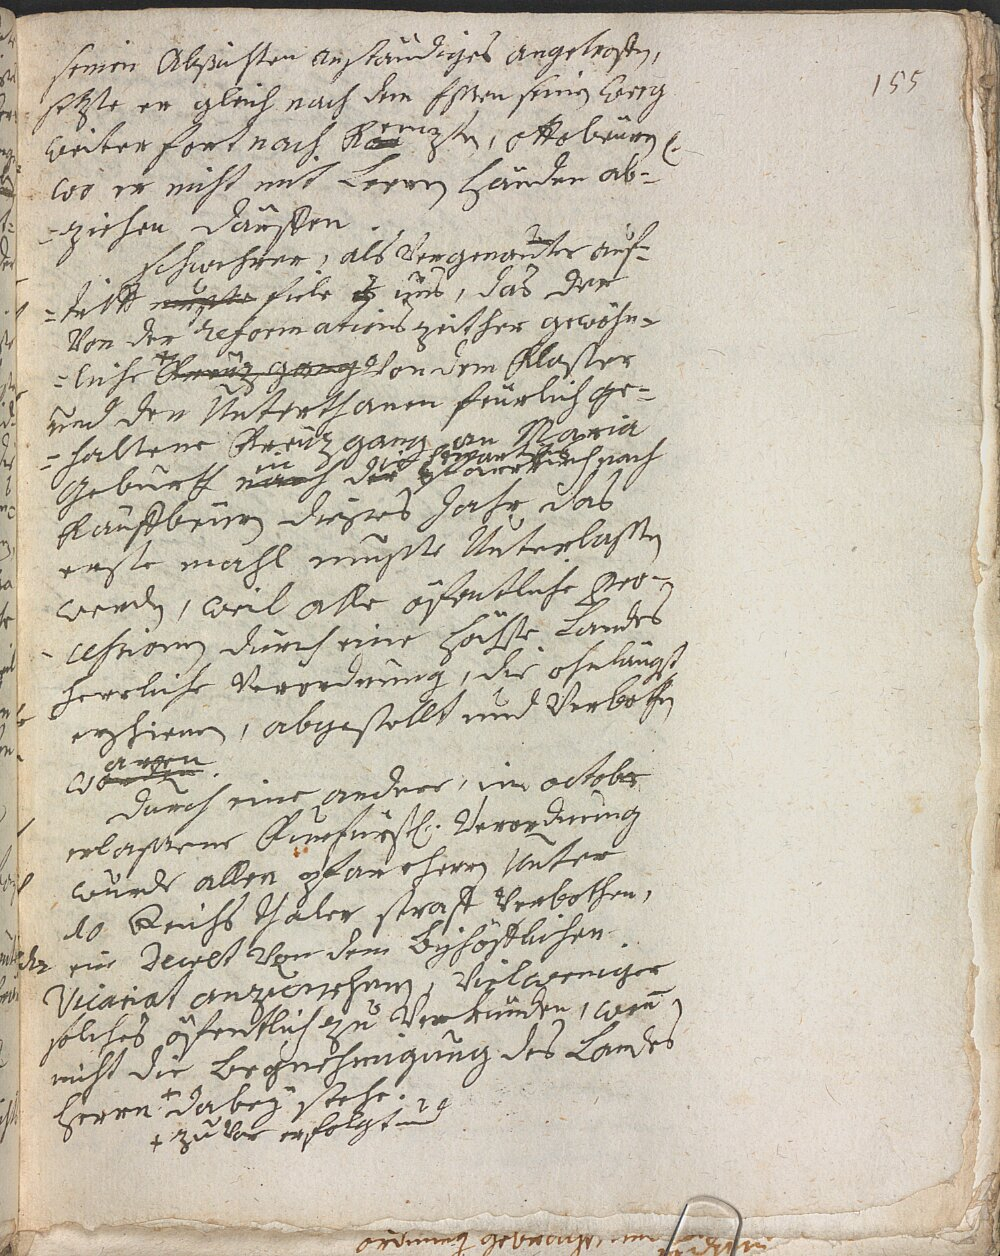 155
seinen Absichten anständiges angetroffen,
setzte er gleich nach dem Essen seinen Weeg
weiter fort nach Kempten, Ottobeürn
wo er nicht mit leeren Händen ab-
=ziehen dürffen.
Schwehrer, als Vorgenanter auf-
=tritt fiele es uns, das der
Von der Reformations zeit her gewöhn-
=liche Von dem Kloster
und den Unterthanen feürlich ge-
=haltene Kreützgang an Maria
Geburth in die Pfarrkirch nach
Kauffbeüren dieses Jahr das
erste mahl muste Unterlassen
werden, weil alle öfentliche Pro-
-cessionen durch eine höchste Landes
herrliche Verordnung, die ohnlängst
erschienen, abgestellt und Verbothen
waren.
Durch eine andere, im octobr
erlassene Kurfürstl. Verordnung
wurde allen pfarrherrn Unter
10 Reichs thaler straff Verbothen,
ein Decret Von dem Bischöfflichen
Vicariat anzunehmen, Vielweniger
solches öfentlich zu Verkünden, wenn
nicht die Begnehmigung des Landes
Herrn + dabey stehe.
+ zuvor erfolgt und
ordnung